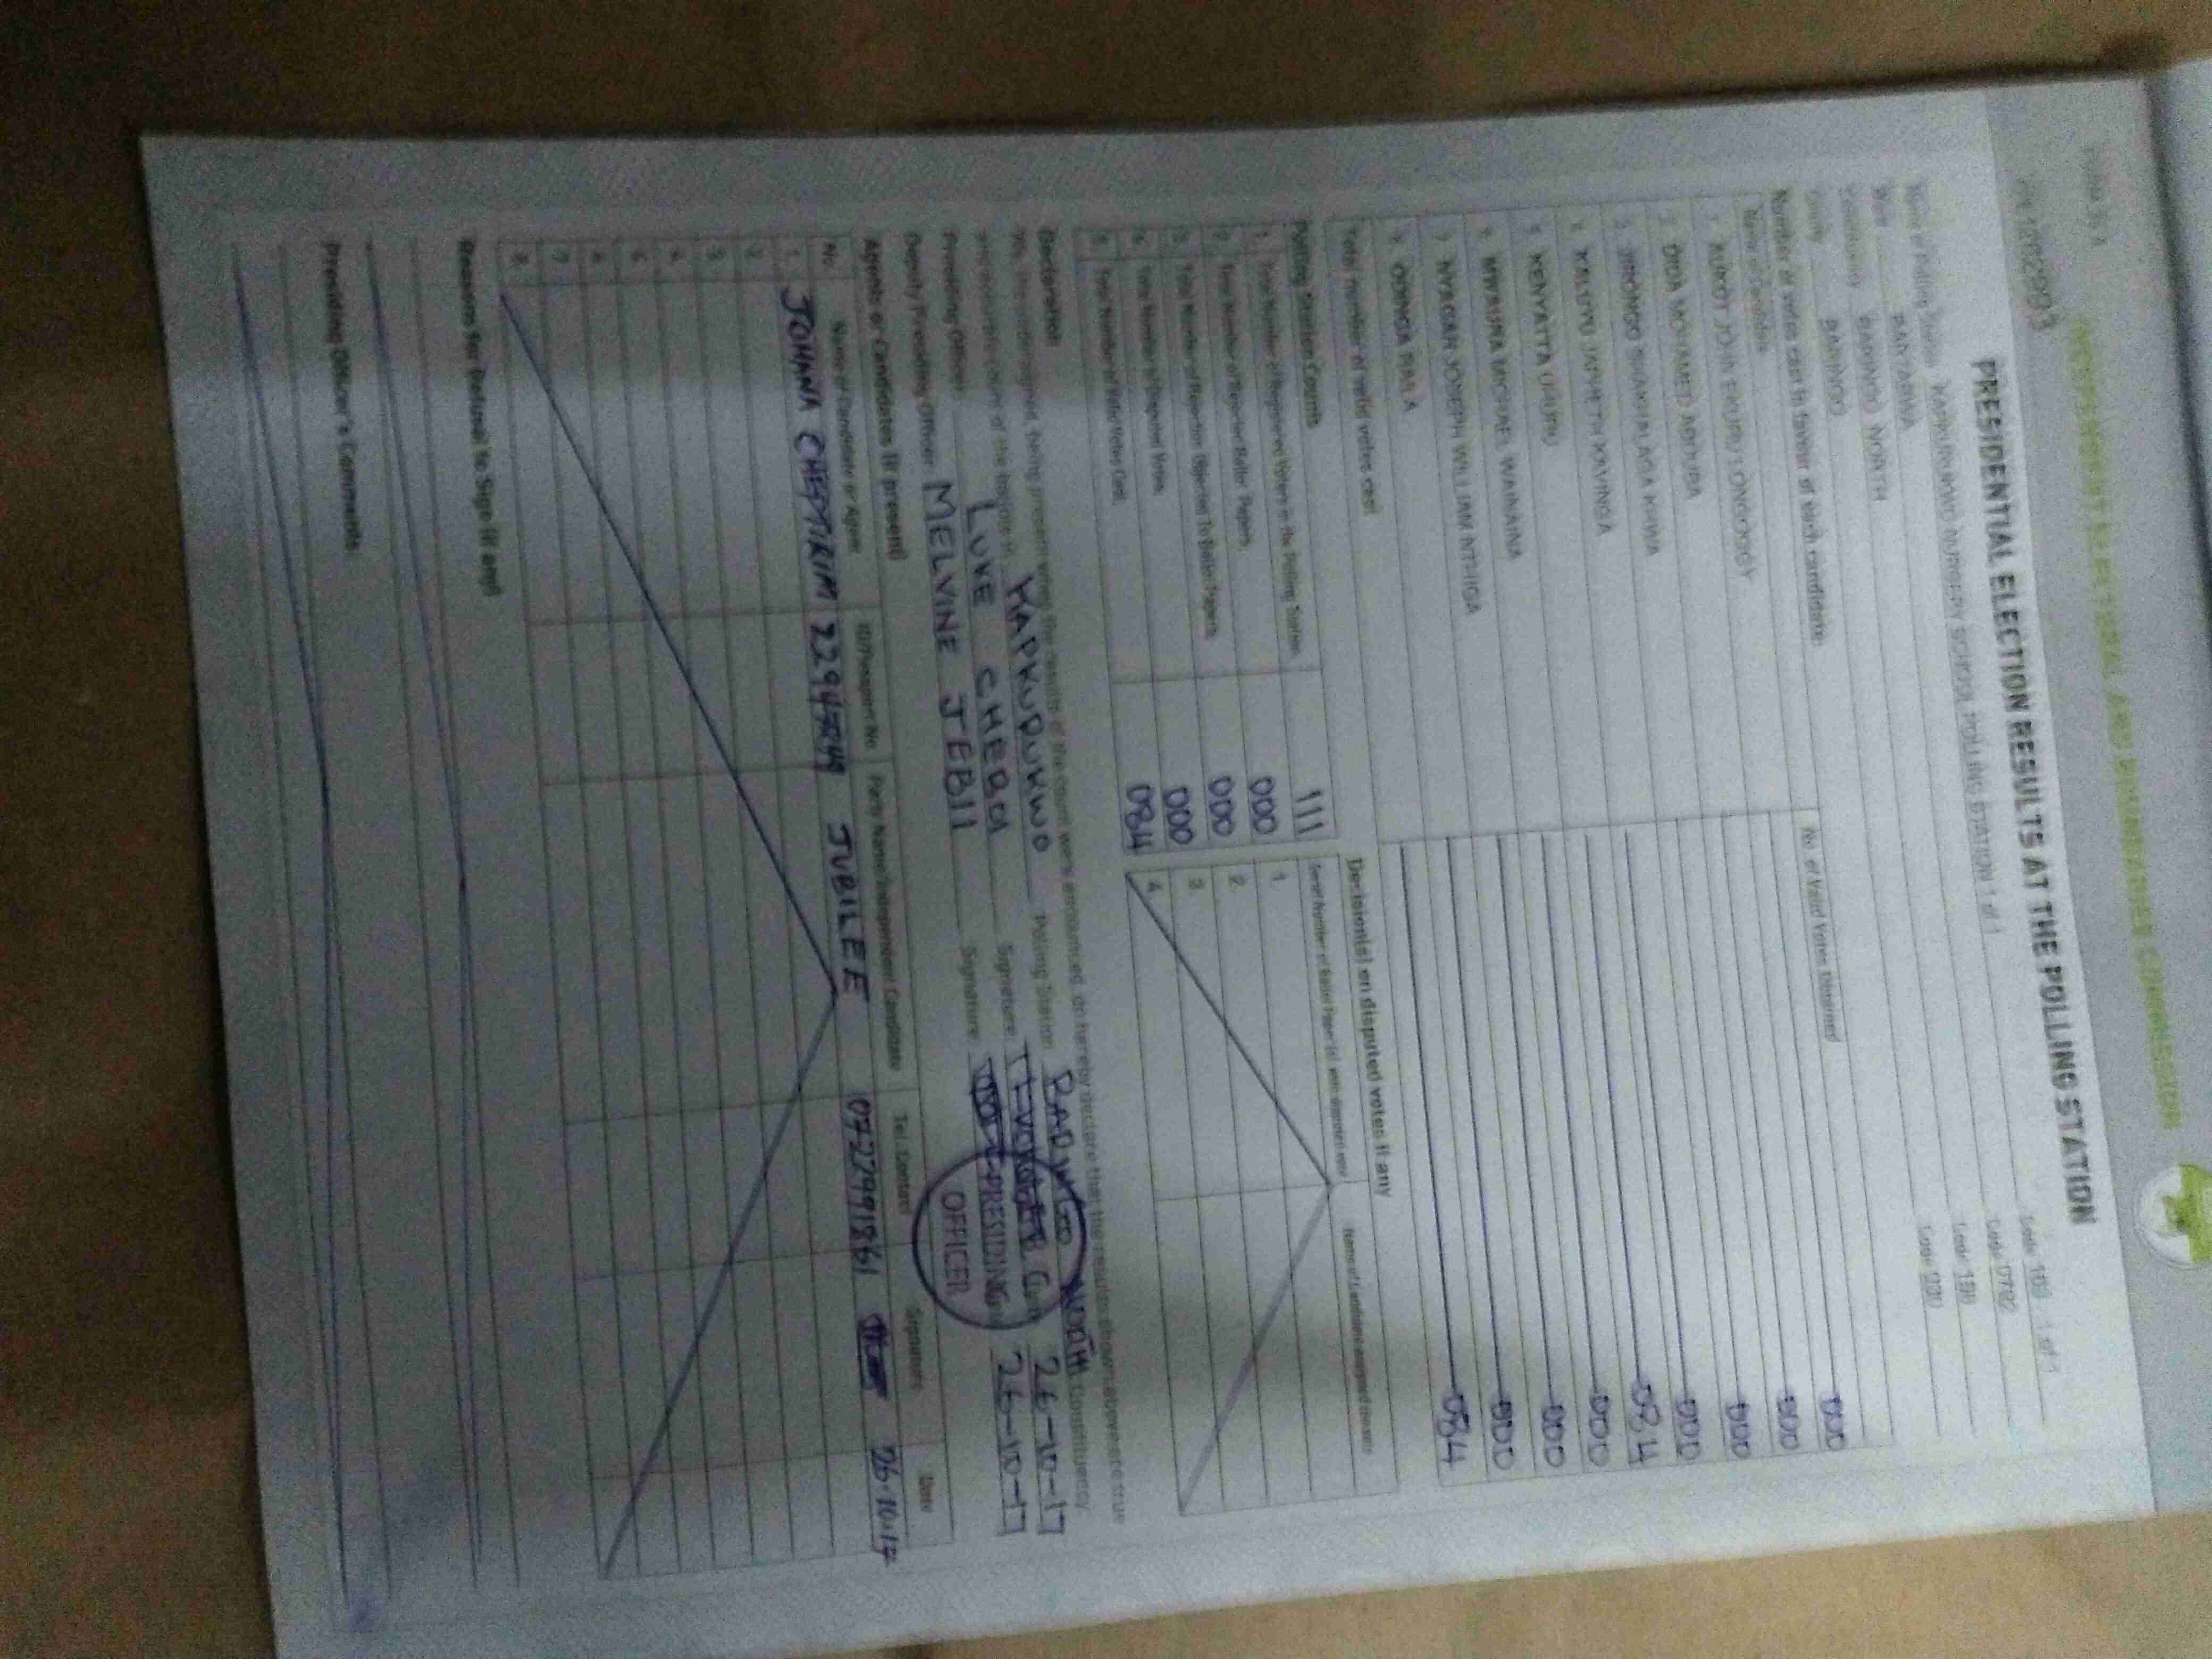 FORM 34 A
INDEPENDENT ELECTORAL AND BOUNDARIES COMMISSION
PRESIDENTIAL ELECTION RESULTS AT THE POLLING STATION
Name of Polling Station KAPKURUKWO NURSERY SCHOOL POLLING STATION 1 of 1 Code 1 of 1
Ward BANYARWA Code 0782
Constituency BARINGO NORTH Code
County BARINGO Code 030
Number of votes cast in favour of each candidate:
Name of Candidate No. of Valid Votes Obtained
1 AUKOT JOHN EKURU LONGOGGY 000
2 DIDA MOHAMED ABDUBA 000
3 JIRONGO SHAKHALAGA KHWA 000
4 KALUYU JAPHETH KAVINGA 000
5 KENYATTA UHURU 084
6 MWAURA MICHAEL WAINAINA 000
7 NYAGAH JOSEPH WILLIAM NTHIGA 000
8 ODINGA RAILA 000
Total number of valid votes cast 084
Polling Station Counts
1. Total Number of Registered Voters in the Polling Station 111
2. Total Number of Rejected Ballot Papers 000
3. Total Number of Rejection Objected To Ballot Papers 000
4. Total Number of Disputed Votes 000
5. Total Number of Valid Votes Cast 084
Decision(s) on disputed votes if any
Serial Number of Ballot Paper (s) with disputed vote
1.
2.
3.
4.
Declaration
We, the undersigned, being present when the results of the count were announced do hereby declare that the results shown above are true
and accurate count of the ballots in KAPKURUKWO Polling Station BARINGO NORTH Constituency
Presiding Officer: LUKE CHEBOI Signature: 26-10-17
Deputy Presiding Officer: MELVINE JEBII Signature: 26-10-17
PRESIDING
OFFICER
Agents or Candidates (if present)
No. Name of Candidate or Agent ID/Passport No Party Name/Independent Candidate Tel. Contact Signature Date
1. JUBILEE 26.10.17
2
3
4
5
6
7
8
Reasons for Refusal to Sign (if any)
Presiding Officer's Comments